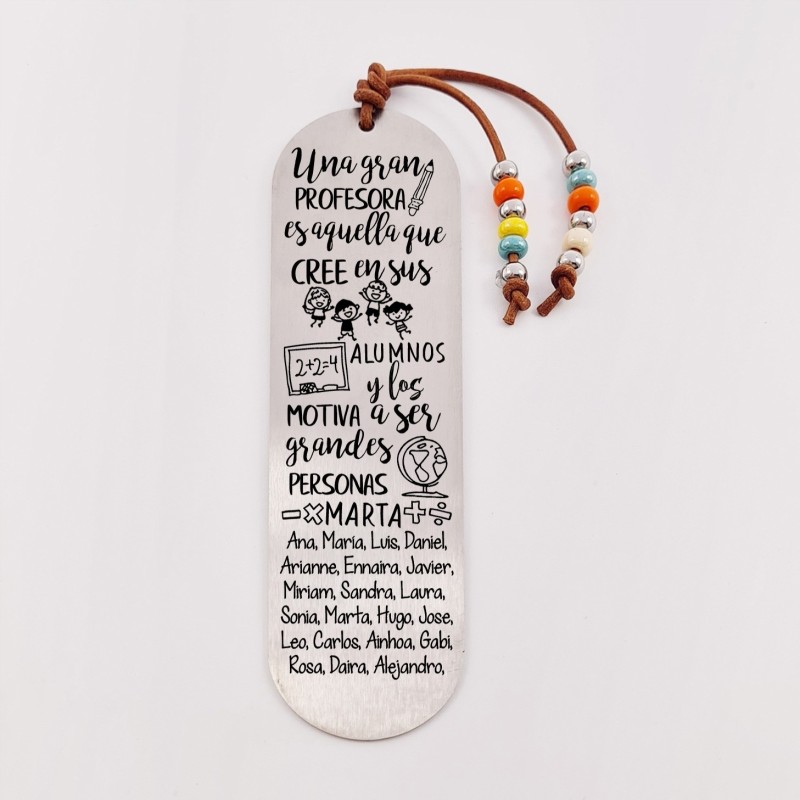 Una gran
PROFESORA
es aquella que
CREE en sus
2+2=4
ALUMNOS
y los
MOTIVA a ser
grandes
PERSONAS
-×MARTA+÷
Ana, María, Luis, Daniel,
Arianne, Ennaira, Javier,
Miriam, Sandra, Laura,
Sonia, Marta, Hugo, Jose,
Leo, Carlos, Ainhoa, Gabi,
Rosa, Daira, Alejandro,